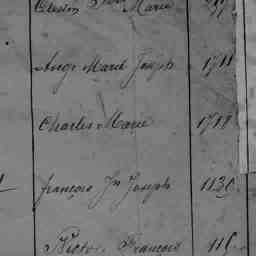 Marie
Ange Marie Joseph 1711
Charles Marie 1719
françois Jn Joseph 1130
Victor François 115